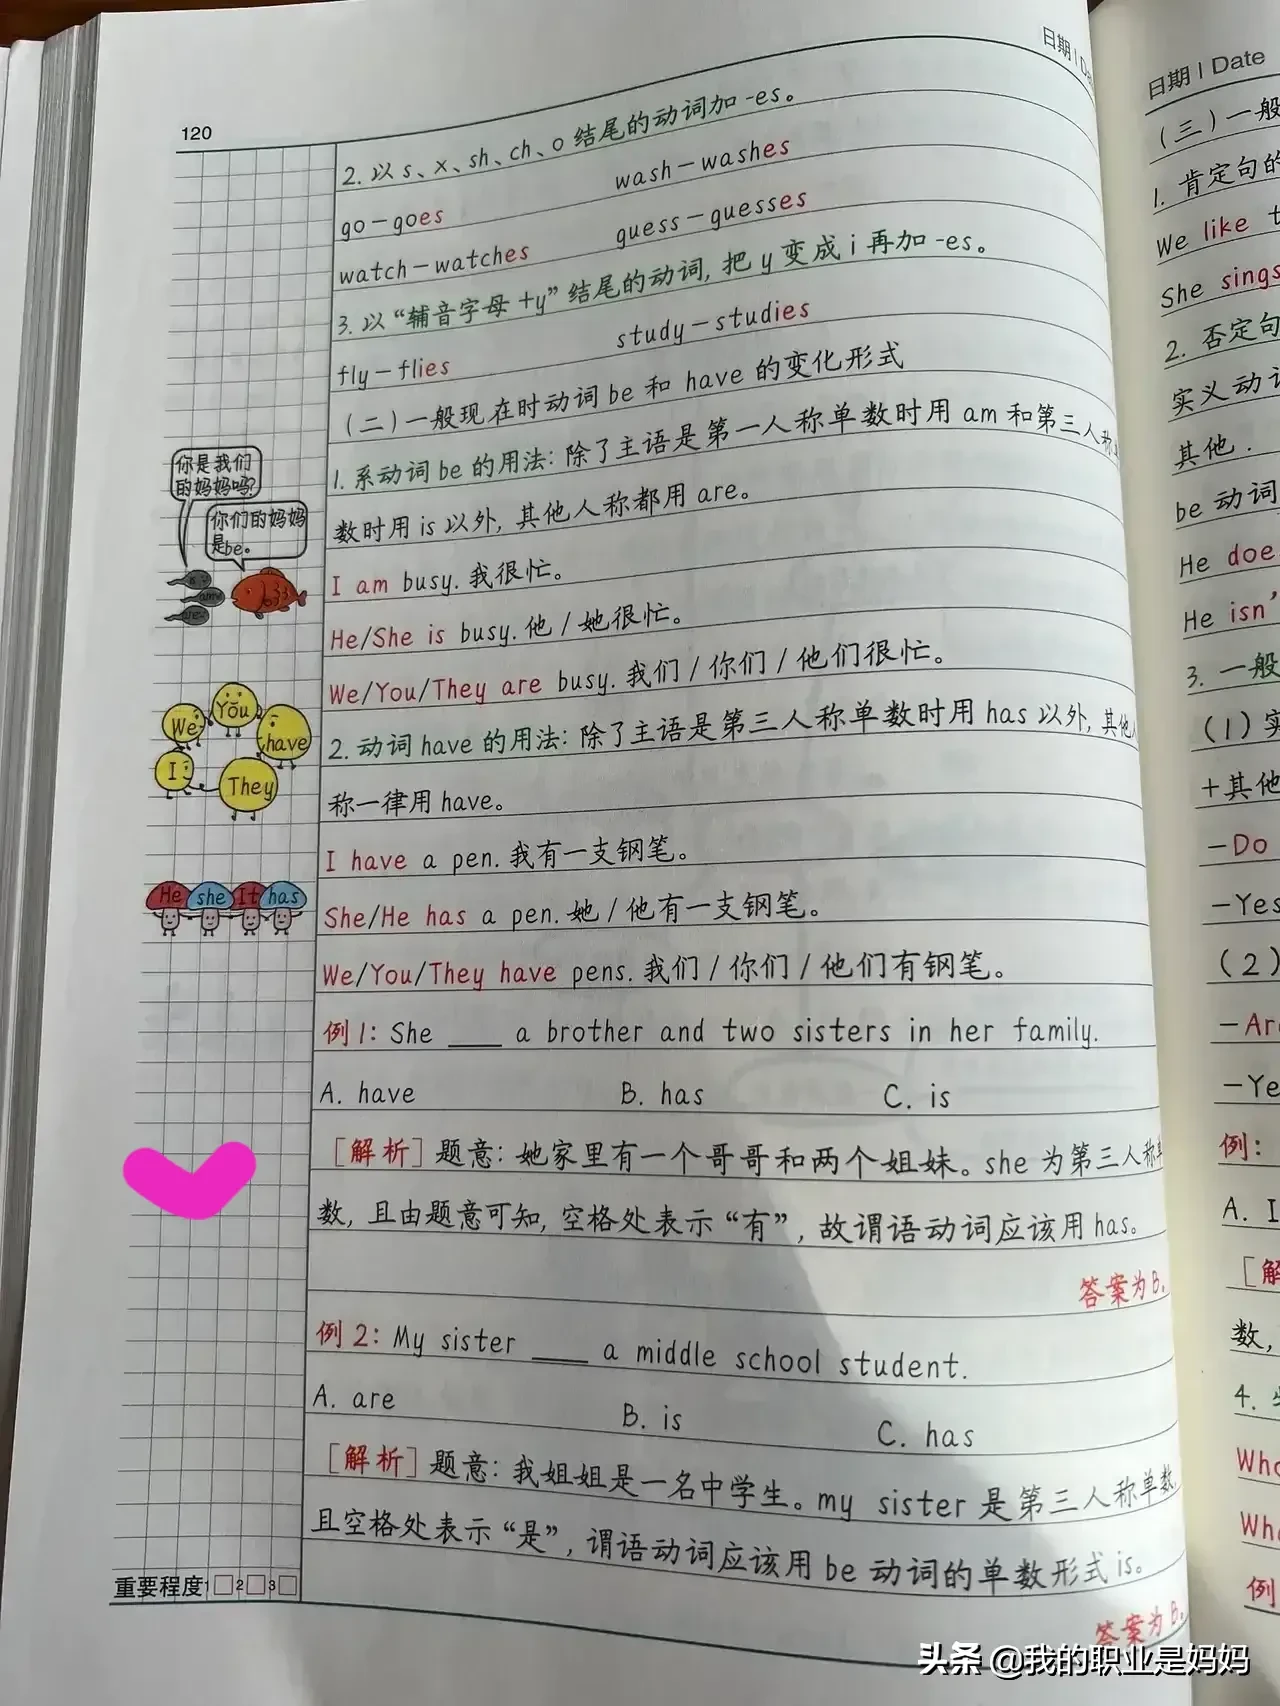 120
日期 | Da
2. 以 s、x、sh、ch、o 结尾的动词加 -es。
go — goes    wash — washes
watch — watches    guess — guesses
3. 以“辅音字母 + y”结尾的动词, 把 y 变成 i 再加 -es。
fly — flies    study — studies
(二) 一般现在时动词 be 和 have 的变化形式
1. 系动词 be 的用法: 除了主语是第一人称单数时用 am 和第三人称
数时用 is 以外, 其他人称都用 are。
I am busy. 我很忙。
He/She is busy. 他 / 她很忙。
We/You/They are busy. 我们 / 你们 / 他们很忙。
2. 动词 have 的用法: 除了主语是第三人称单数时用 has 以外, 其他
称一律用 have。
I have a pen. 我有一支钢笔。
She/He has a pen. 她 / 他有一支钢笔。
We/You/They have pens. 我们 / 你们 / 他们有钢笔。
例 1: She ___ a brother and two sisters in her family.
A. have    B. has    C. is
[解析] 题意: 她家里有一个哥哥和两个姐妹。she 为第三人称单
数, 且由题意可知, 空格处表示“有”, 故谓语动词应该用 has。
答案为 B。
例 2: My sister ___ a middle school student.
A. are    B. is    C. has
[解析] 题意: 我姐姐是一名中学生。my sister 是第三人称单数,
且空格处表示“是”, 谓语动词应该用 be 动词的单数形式 is。
答案为 B。
你是我们
的妈妈吗?
你们的妈妈
是be。
We
You
have
I
They
He
she
It
has
重要程度 1□2□3□
日期 | Date
(三) 一般
1. 肯定句的
We like t
She sings
2. 否定句
实义动词
其他.
be 动词
He doe
He isn'
3. 一般
(1) 实
+其他
—Do
—Yes
(2)
—Are
—Ye
例:
A. I
[解
数,
4.
Who
Wh
例
头条 @我的职业是妈妈